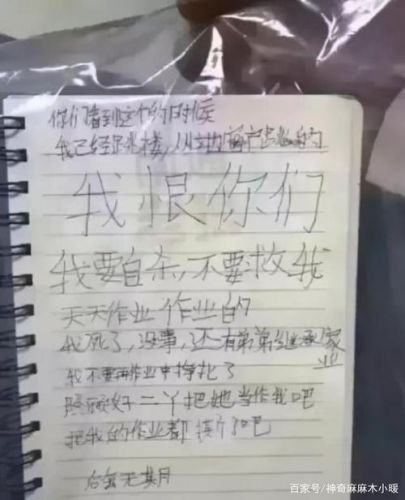 你们看到这个的时候
我已经跳楼,从
我恨你们
我要自杀,不要救我
天天作业作业的
我死了,没事,还有弟弟继承家业
我不要再作业中挣扎了
照顾好二丫把她当作我吧
把我的作业都 了吧
后会无期
百家号/神奇麻麻木小暖